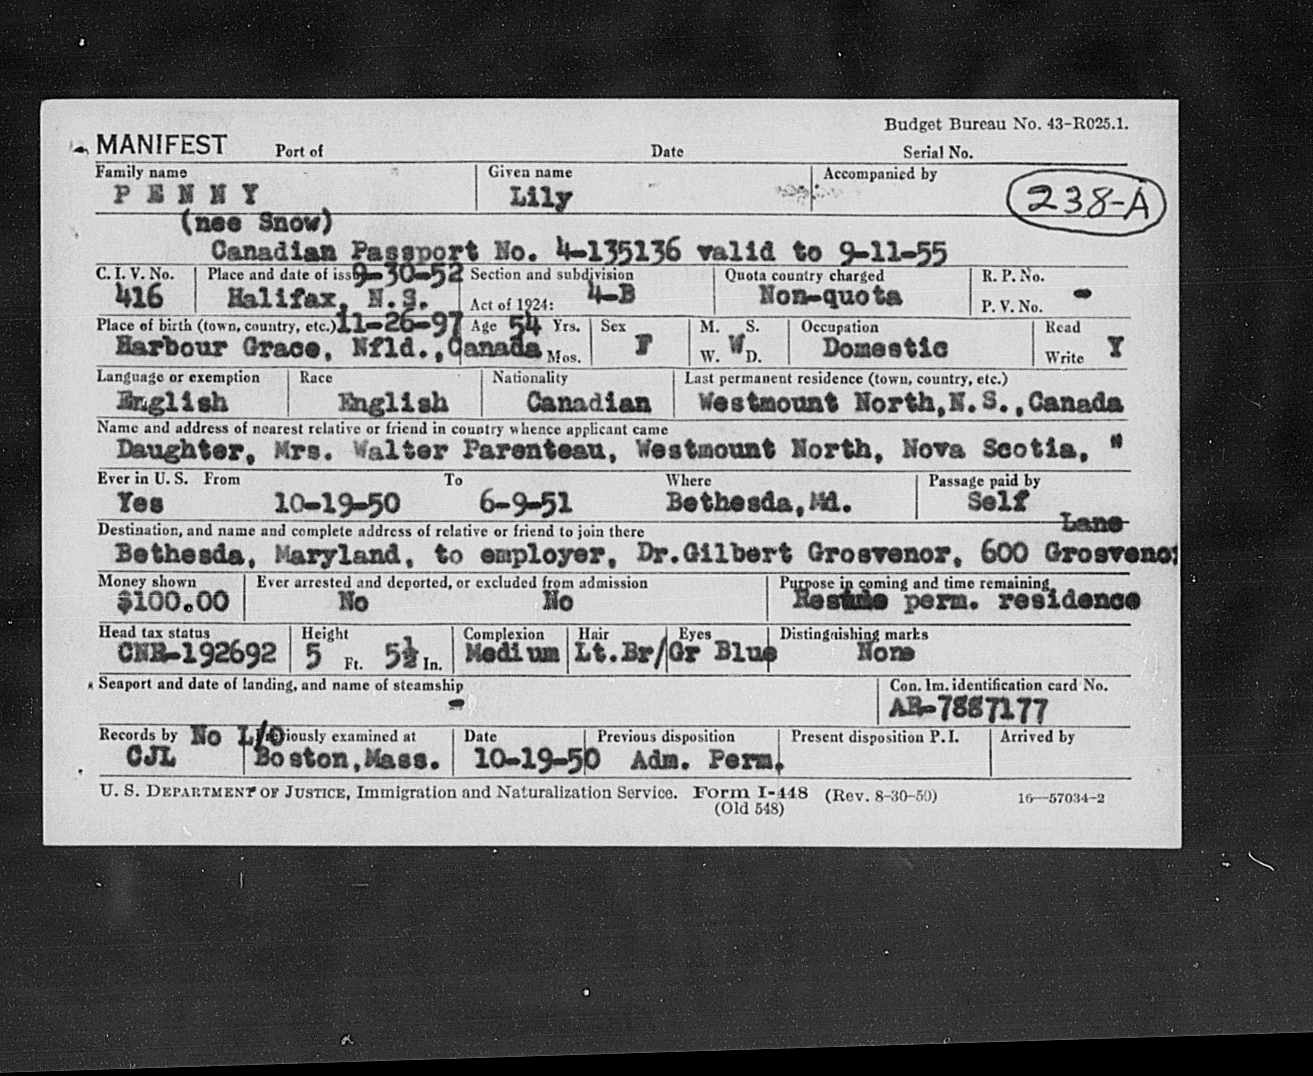 Budget Bureau No. 43-R025.1.
MANIFEST Port of Date Serial No.
Family name Given name Accompanied by
P E N N Y Lily 238-A
(nee Snow)
Canadian Passport No. 4-135136 valid to 9-11-55
C. I. V. No. Place and date of iss 9-30-52 Section and subdivision Quota country charged R. P. No.
416 Halifax, N.S. Act of 1924: 4-B Non-quota P. V. No. -
Place of birth (town, country, etc.) 11-26-97 Age 54 Yrs. Sex M. S. Occupation Read
Harbour Grace, Nfld., Canada Mos. F W. W D. Domestic Write Y
Language or exemption Race Nationality Last permanent residence (town, country, etc.)
English English Canadian Westmount North, N.S., Canada
Name and address of nearest relative or friend in country whence applicant came
Daughter, Mrs. Walter Parenteau, Westmount North, Nova Scotia, "
Ever in U. S. From To Where Passage paid by
Yes 10-19-50 6-9-51 Bethesda, Md. Self
Lane
Destination, and name and complete address of relative or friend to join there
Bethesda, Maryland, to employer, Dr.Gilbert Grosvenor, 600 Grosvenor
Money shown Ever arrested and deported, or excluded from admission Purpose in coming and time remaining
$100.00 No No Resume perm. residence
Head tax status Height Complexion Hair Eyes Distinguishing marks
CNR-192692 5 Ft. 5½ In. Medium Lt.Br/Gr Blue None
Seaport and date of landing, and name of steamship Con. Im. identification card No.
- AR-7887177
Records by No L/O iously examined at Date Previous disposition Present disposition P. I. Arrived by
CJL Boston, Mass. 10-19-50 Adm. Perm.
U. S. DEPARTMENT OF JUSTICE, Immigration and Naturalization Service. Form I-448 (Rev. 8-30-50) 16—57034-2
(Old 548)